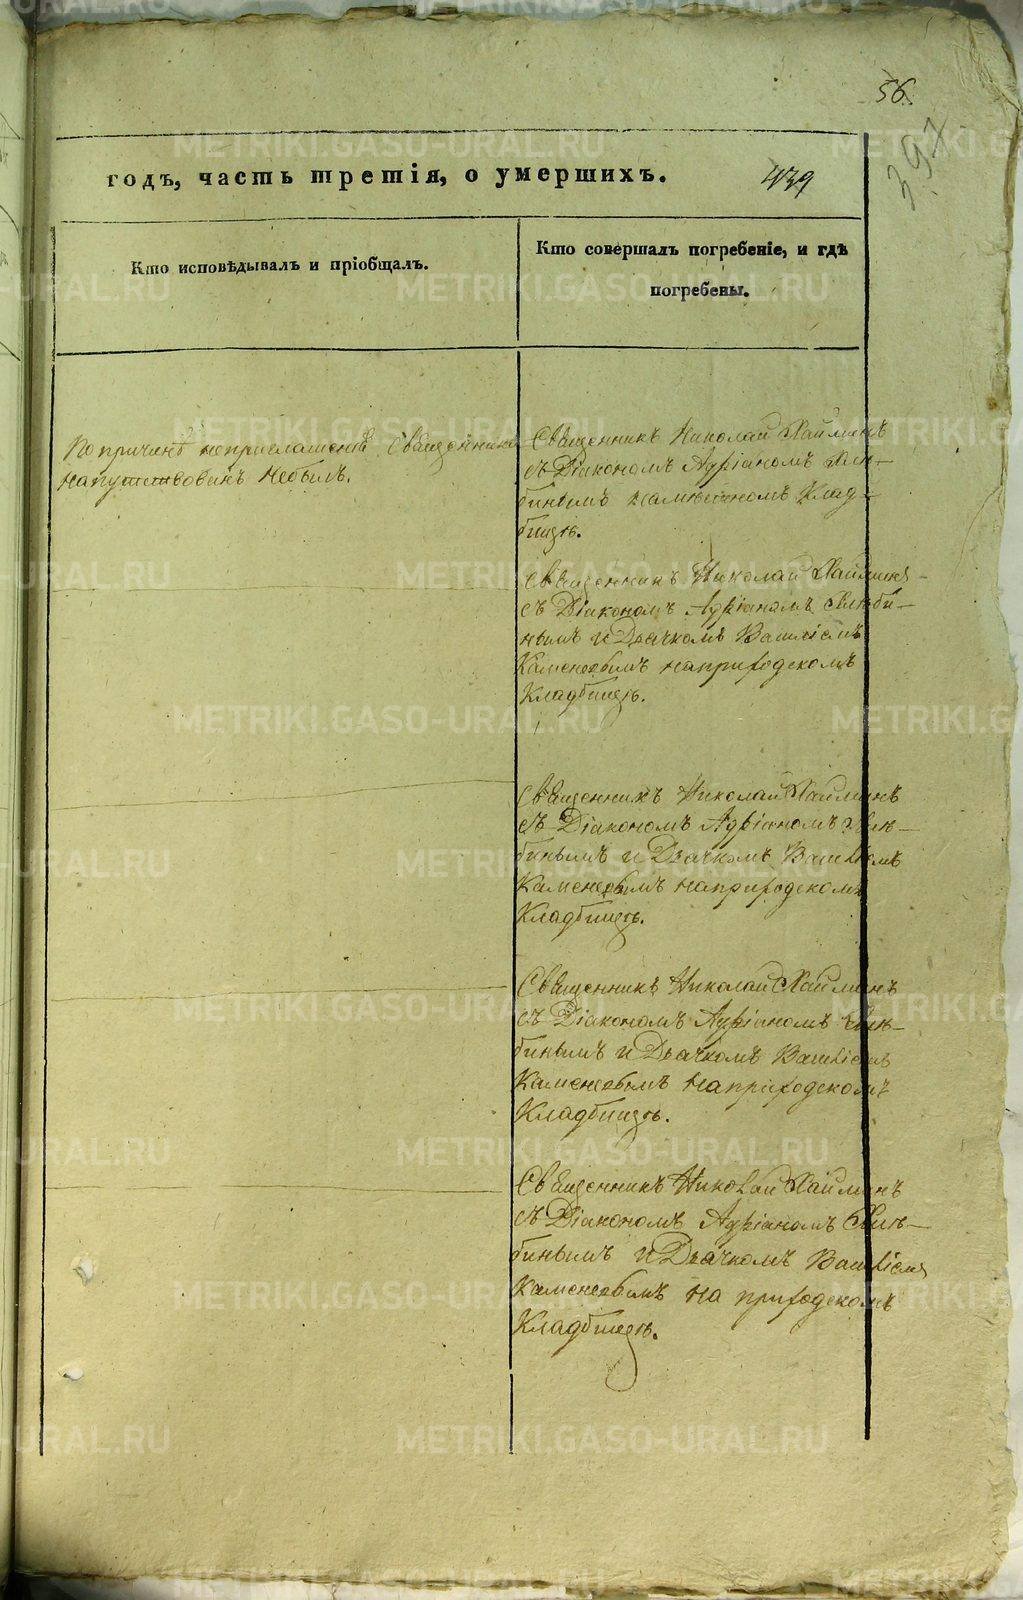 56.
397
годъ, часть третія, о умершихъ.
439
Кто исповѣдывалъ и пріобщалъ.
Кто совершалъ погребеніе, и гдѣ
погребены.
По причинѣ неприглашенія Священника
напутствованъ небылъ.
Священникъ Николай
съ Діакономъ Адріаномъ
Клад-
бищѣ.
Священникъ Николай
съ Діакономъ Адріаномъ
и Дьячкомъ Василіемъ
Каменевымъ наприходскомъ
Кладбищѣ.
Священникъ Николай
съ Діакономъ Адріаномъ
и Дьячкомъ Василіемъ
Каменевымъ наприходскомъ
Кладбищѣ.
Священникъ Николай
съ Діакономъ Адріаномъ
и Дьячкомъ Василіемъ
Каменевымъ наприходскомъ
Кладбищѣ.
Священникъ Николай
съ Діакономъ Адріаномъ
и Дьячкомъ Василіемъ
Каменевымъ на приходскомъ
Кладбищѣ.
METRIKI.GASO-URAL.RU